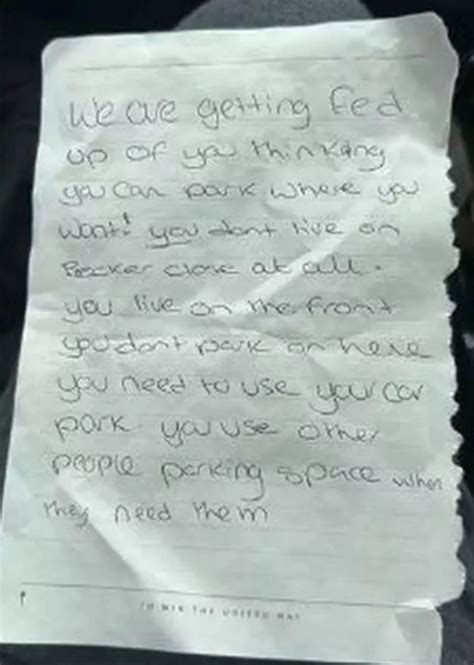 We are getting fed
up of you thinkang
you can park where you
want! you dont live on
Becker close at all.
you live on the front
you dont park on here
you need to use your car
park. you use other
people parking space when
they need them